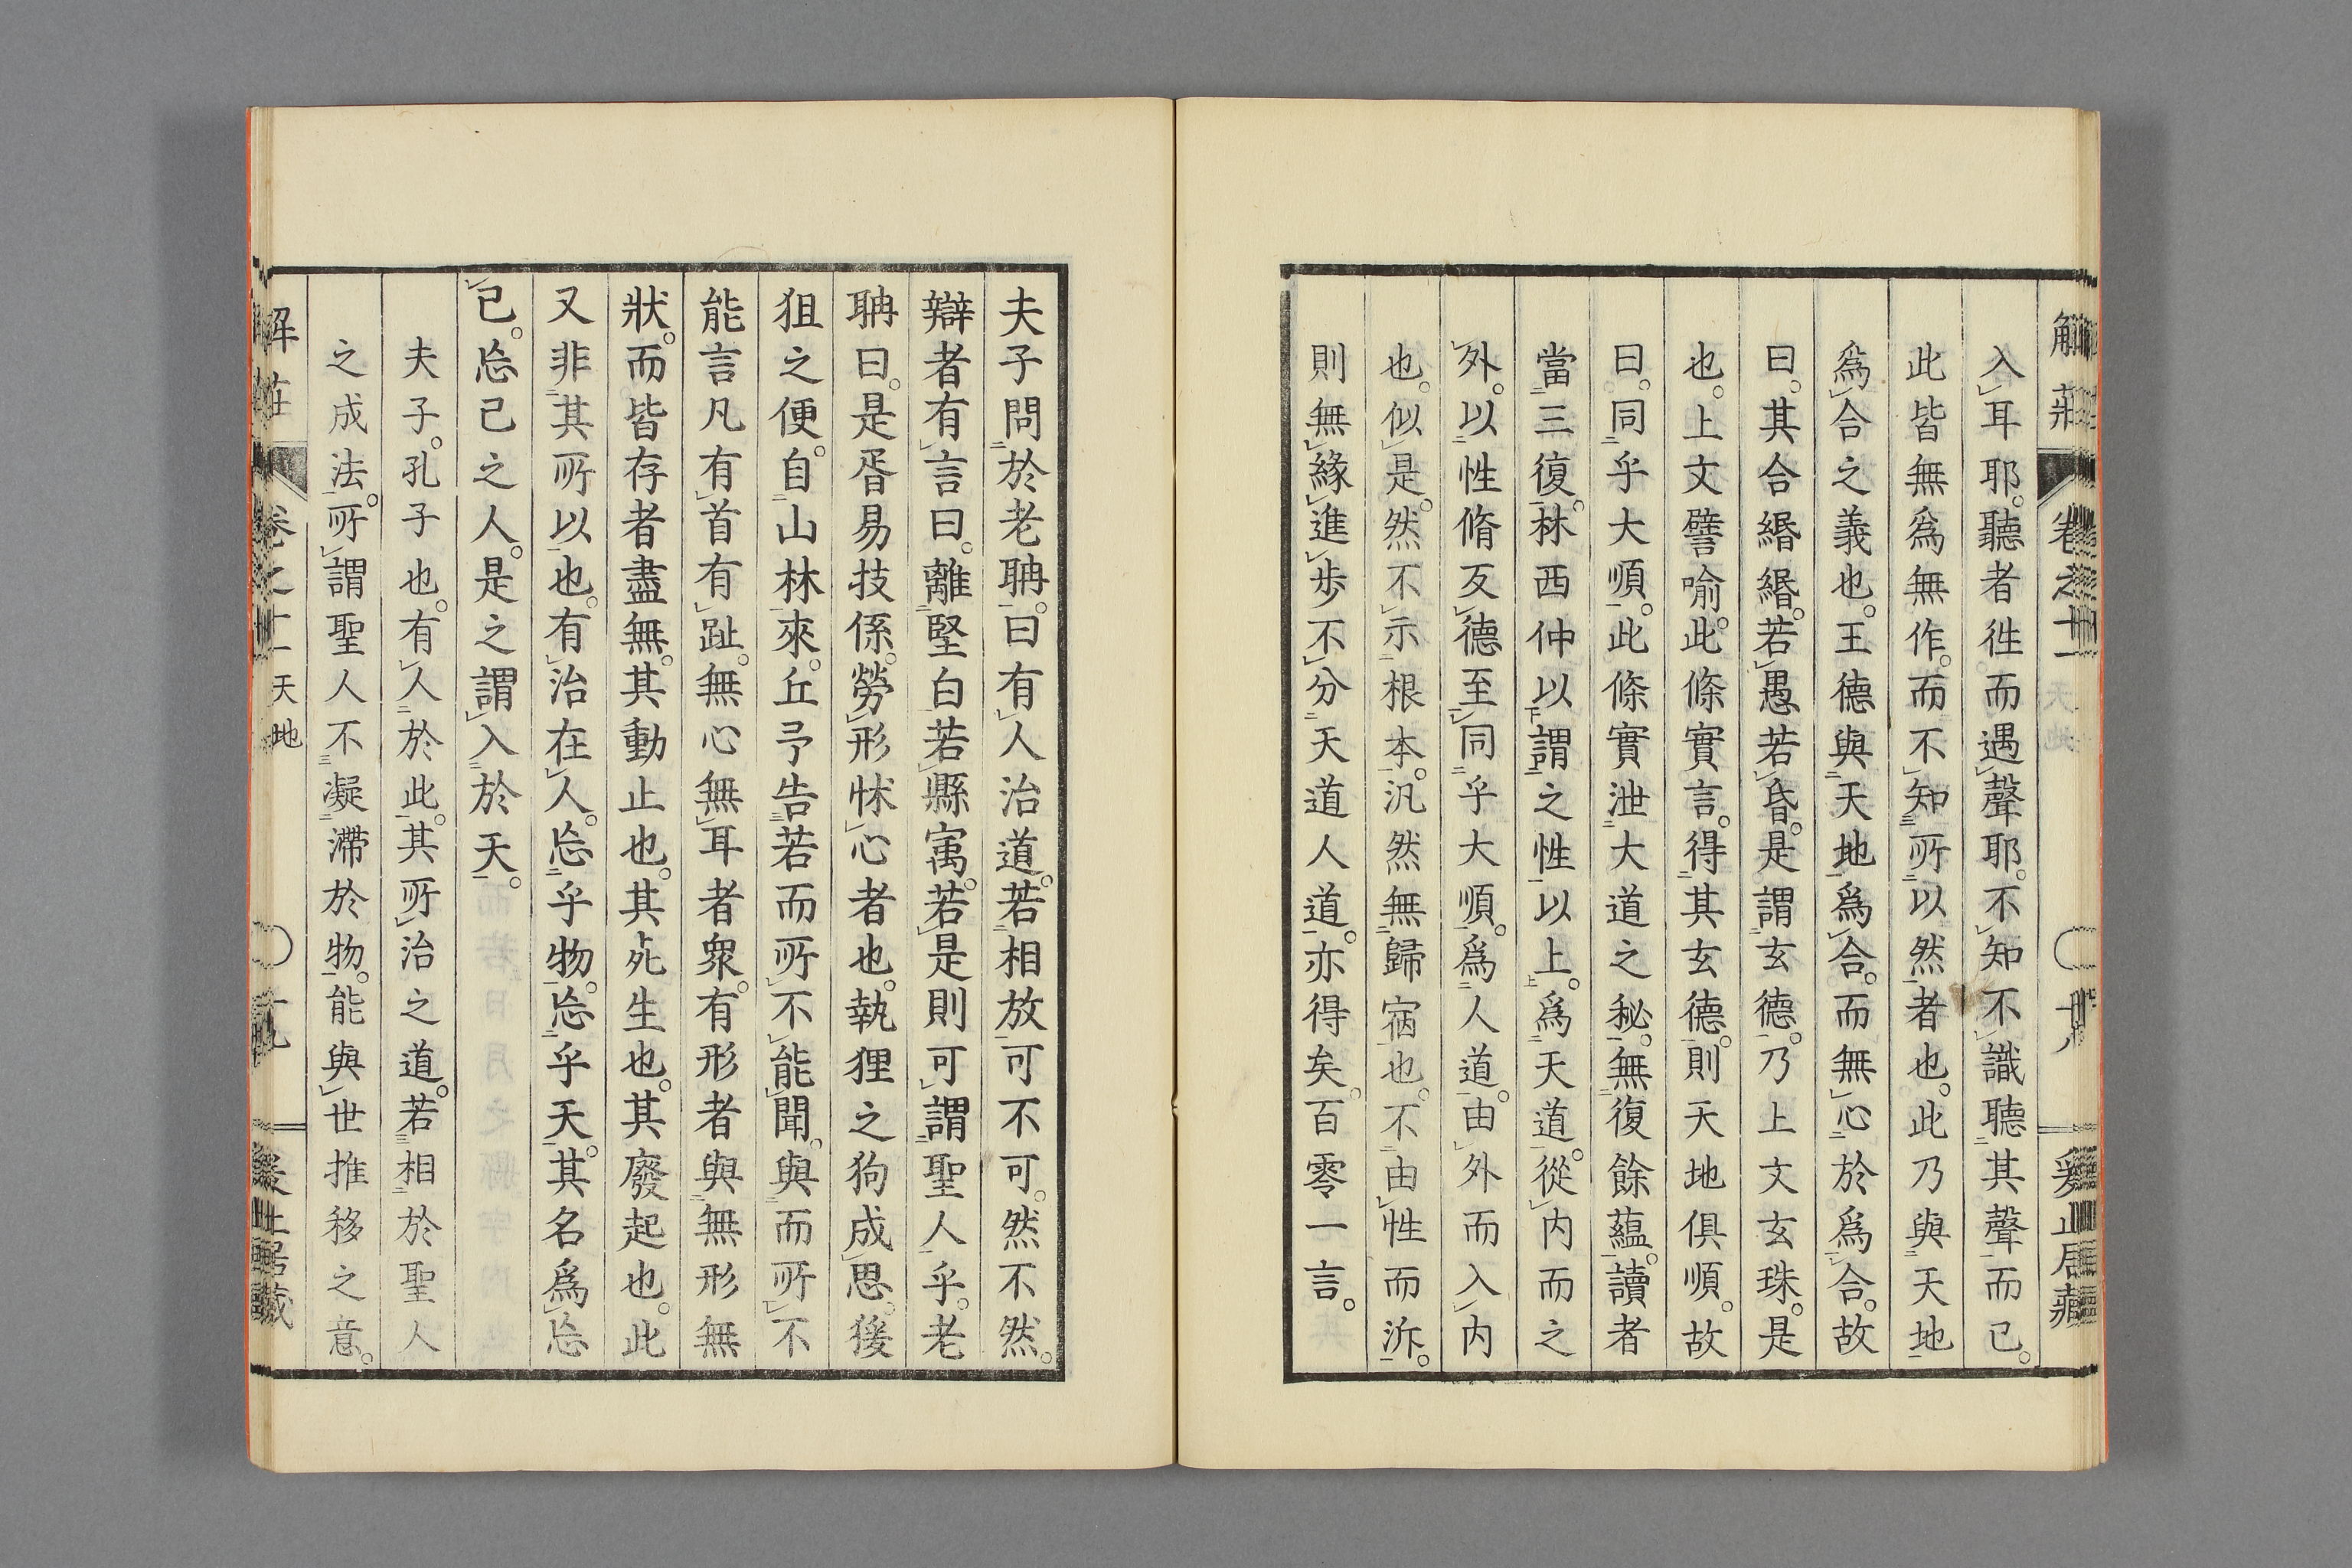 解莊 卷之十一 天地
入耳耶。聽者徃而遇聲耶。不知不識聽其聲而已。
此皆無爲無作。而不知所以然者也。此乃與天地
爲合之義也。王德與天地爲合。而無心於爲合。故
曰。其合緡緡。若愚若昏。是謂玄德。乃上文玄珠。是
也。上文譬喻。此條實言。得其玄德。則天地俱順。故
曰。同乎大順。此條實泄大道之秘。無復餘蘊。讀者
當三復。林西仲以謂之性以上。爲天道。從内而之
外。以性脩反德至同乎大順。爲人道。由外而入内
也。似是。然不示根本。汎然無歸宿也。不由性而泝。
則無緣進步不分天道人道。亦得矣。百零一言。
夫子問於老聃。曰有人治道。若相放可不可。然不然。
辯者有言曰。離堅白若縣㝢。若是則可謂聖人乎。老
聃曰。是胥易技係。勞形怵心者也。執狸之狗成思。猨
狙之便。自山林來。丘予告若而所不能聞。與而所不
能言凡有首有趾。無心無耳者衆。有形者與無形無
狀。而皆存者盡無。其動止也。其死生也。其廢起也。此
又非其所以也。有治在人。忘乎物。忘乎天。其名爲忘
已。忘己之人。是之謂入於天。
夫子。孔子也。有人於此。其所治之道。若相於聖人
之成法。所謂聖人不凝滯於物。能與世推移之意。
解莊 卷之十一 天地